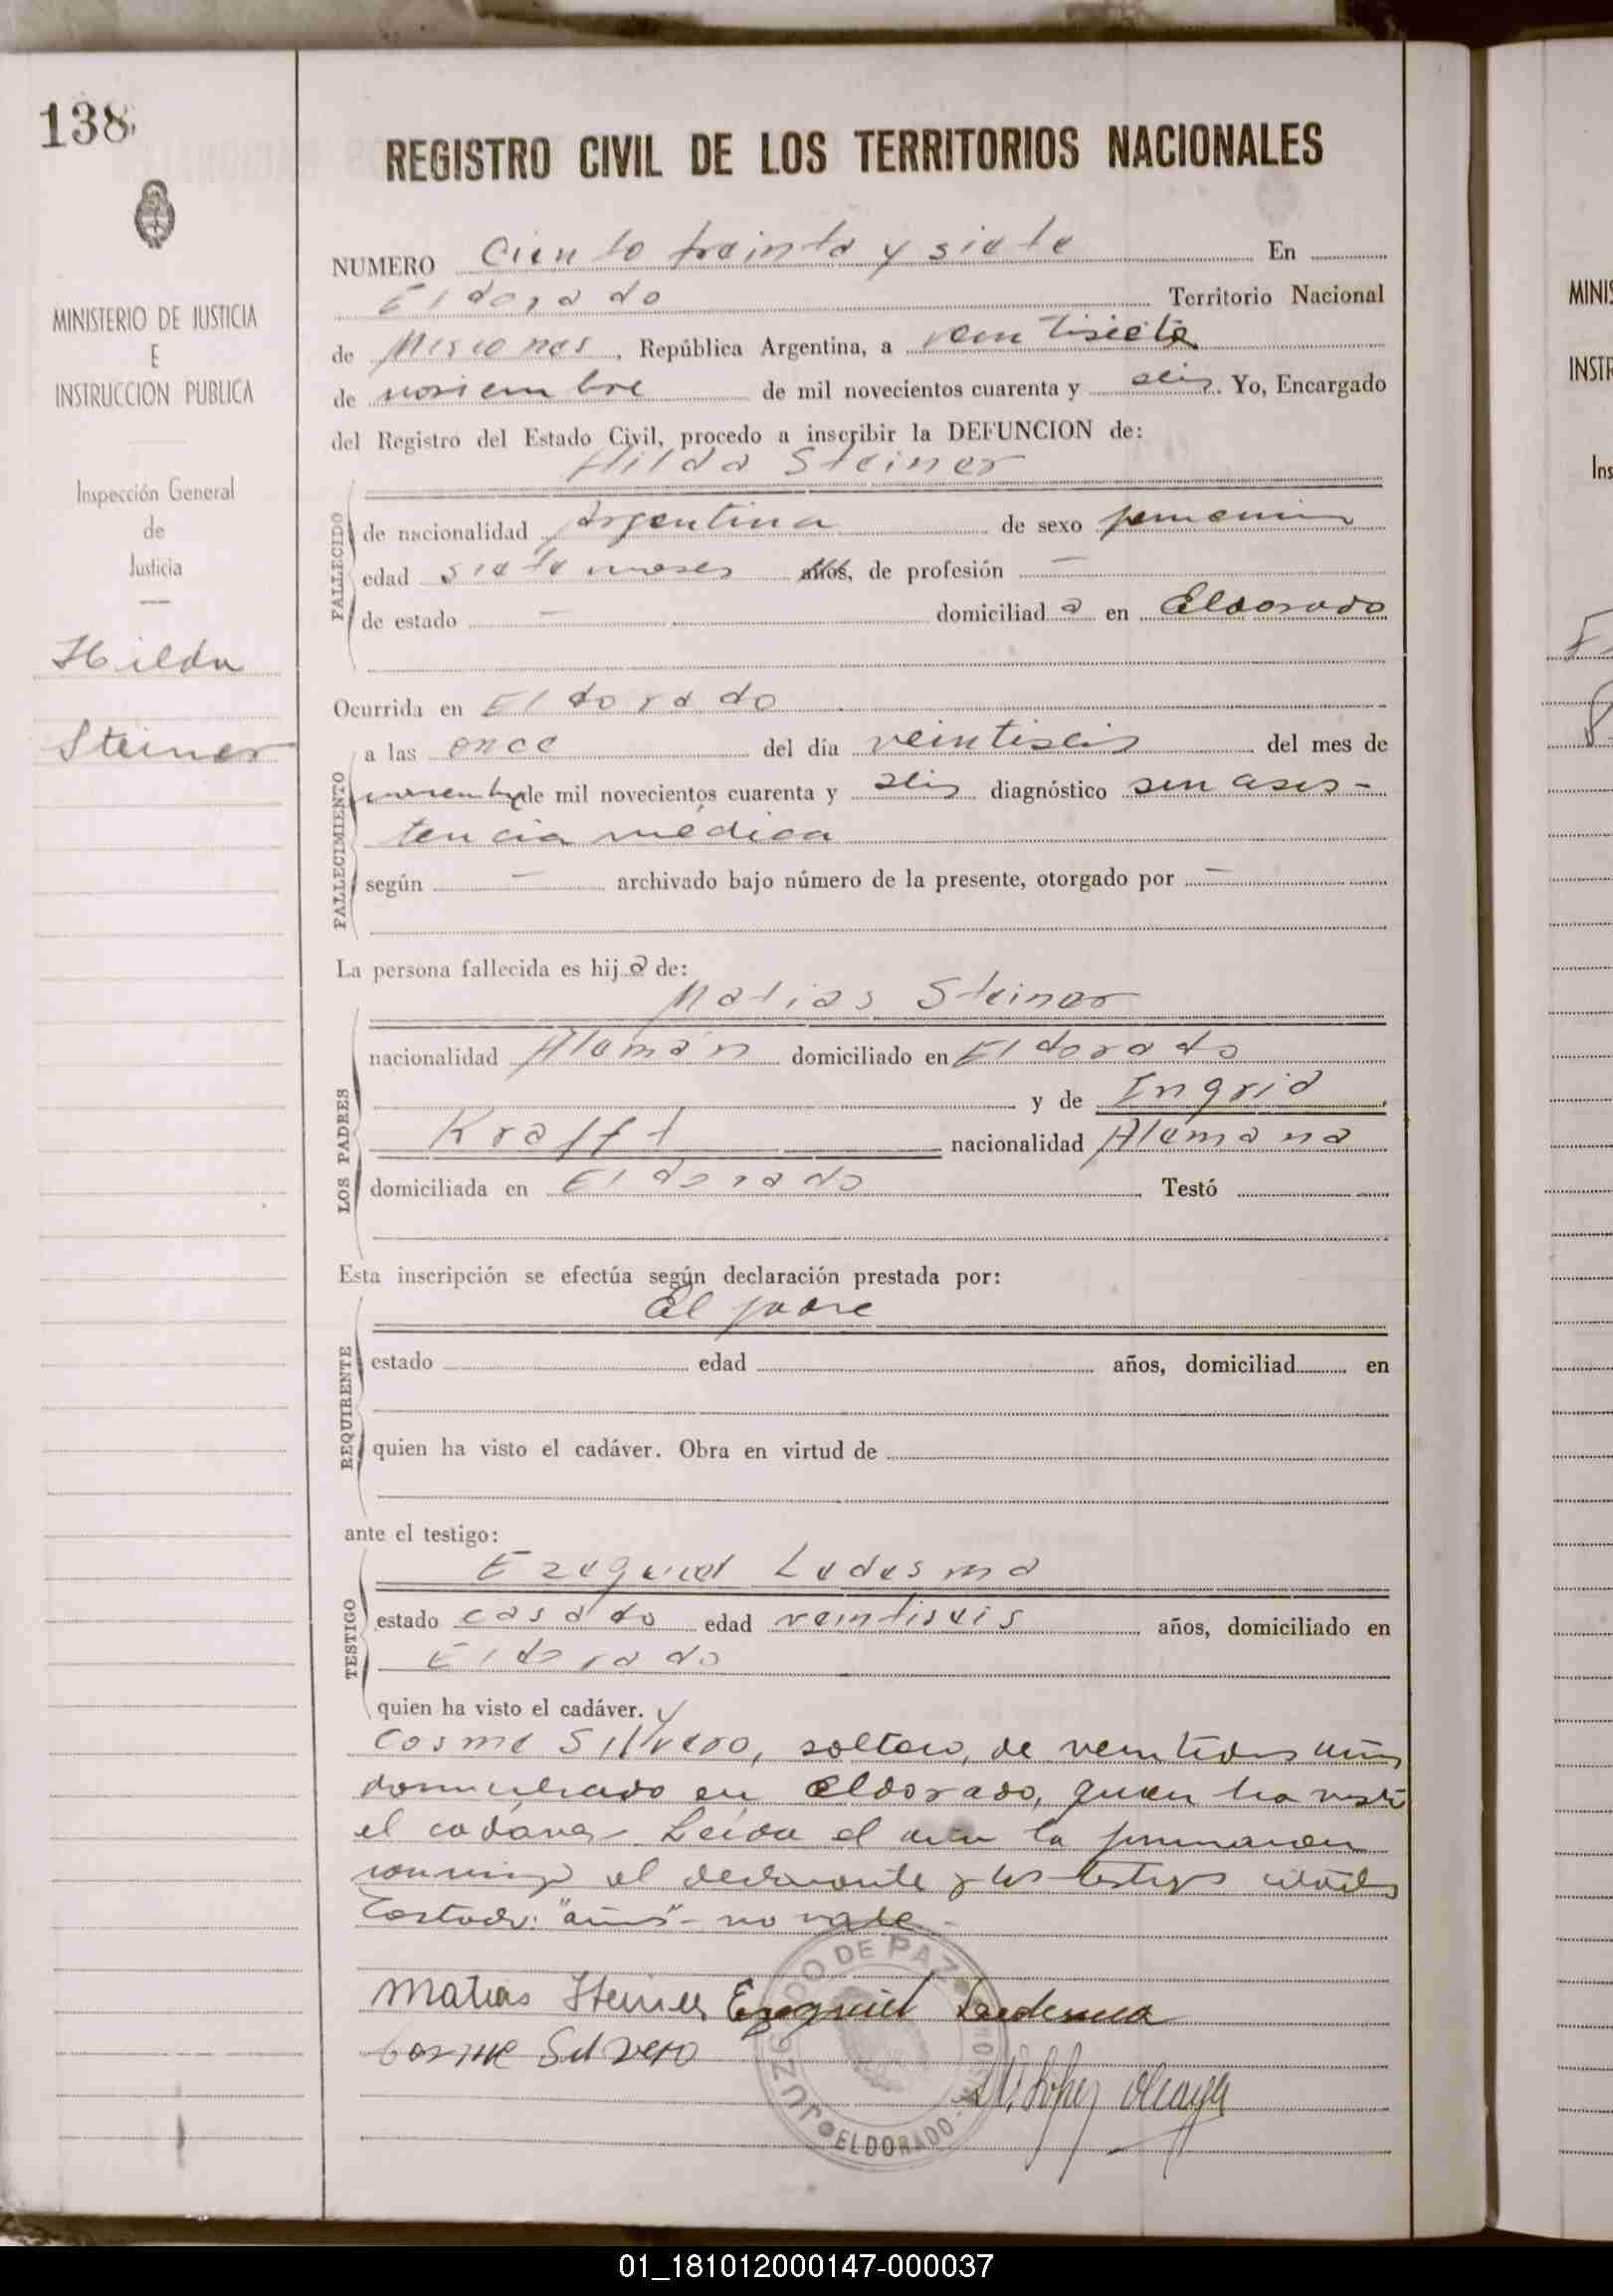 138
MINISTERIO DE JUSTICIA
E
INSTRUCCION PUBLICA
Inspección General
de
Justicia
Hilda
Steiner
REGISTRO CIVIL DE LOS TERRITORIOS NACIONALES
NUMERO Ciento treinta y siete En
Eldorado Territorio Nacional
de Misiones, República Argentina, a veintisiete
de noviembre de mil novecientos cuarenta y seis. Yo, Encargado
del Registro del Estado Civil, procedo a inscribir la DEFUNCION de:
Hilda Steiner
FALLECIDO
de nacionalidad Argentina de sexo femenino
edad siete meses años, de profesión —
de estado — domiciliad a en Eldorado
Ocurrida en Eldorado
FALLECIMIENTO
a las once del día veintiseis del mes de
noviembre de mil novecientos cuarenta y seis diagnóstico sin asis-
tencia médica
según — archivado bajo número de la presente, otorgado por —
La persona fallecida es hij a de:
Matias Steiner
LOS PADRES
nacionalidad Alemán domiciliado en Eldorado
y de Ingrid
Krafft nacionalidad Alemana
domiciliada en Eldorado Testó
Esta inscripción se efectúa según declaración prestada por:
El padre
REQUIRENTE
estado edad años, domiciliad en
quien ha visto el cadáver. Obra en virtud de
ante el testigo:
Ezequiel Ledesma
TESTIGO
estado casado edad veintiseis años, domiciliado en
Eldorado
quien ha visto el cadáver. y
Cosme Silvero, soltero, de veintidos años
domiciliado en Eldorado, quien ha visto
el cadáver. Leída el acta la firmaron
conmigo el declarante y los testigos citados
Testado: "años" - no vale -
Matias Steiner Ezequiel Ledesma
Cosme Silvero
JUZGADO DE PAZ
ELDORADO
MINIS
INSTR
Ins
01_181012000147-000037